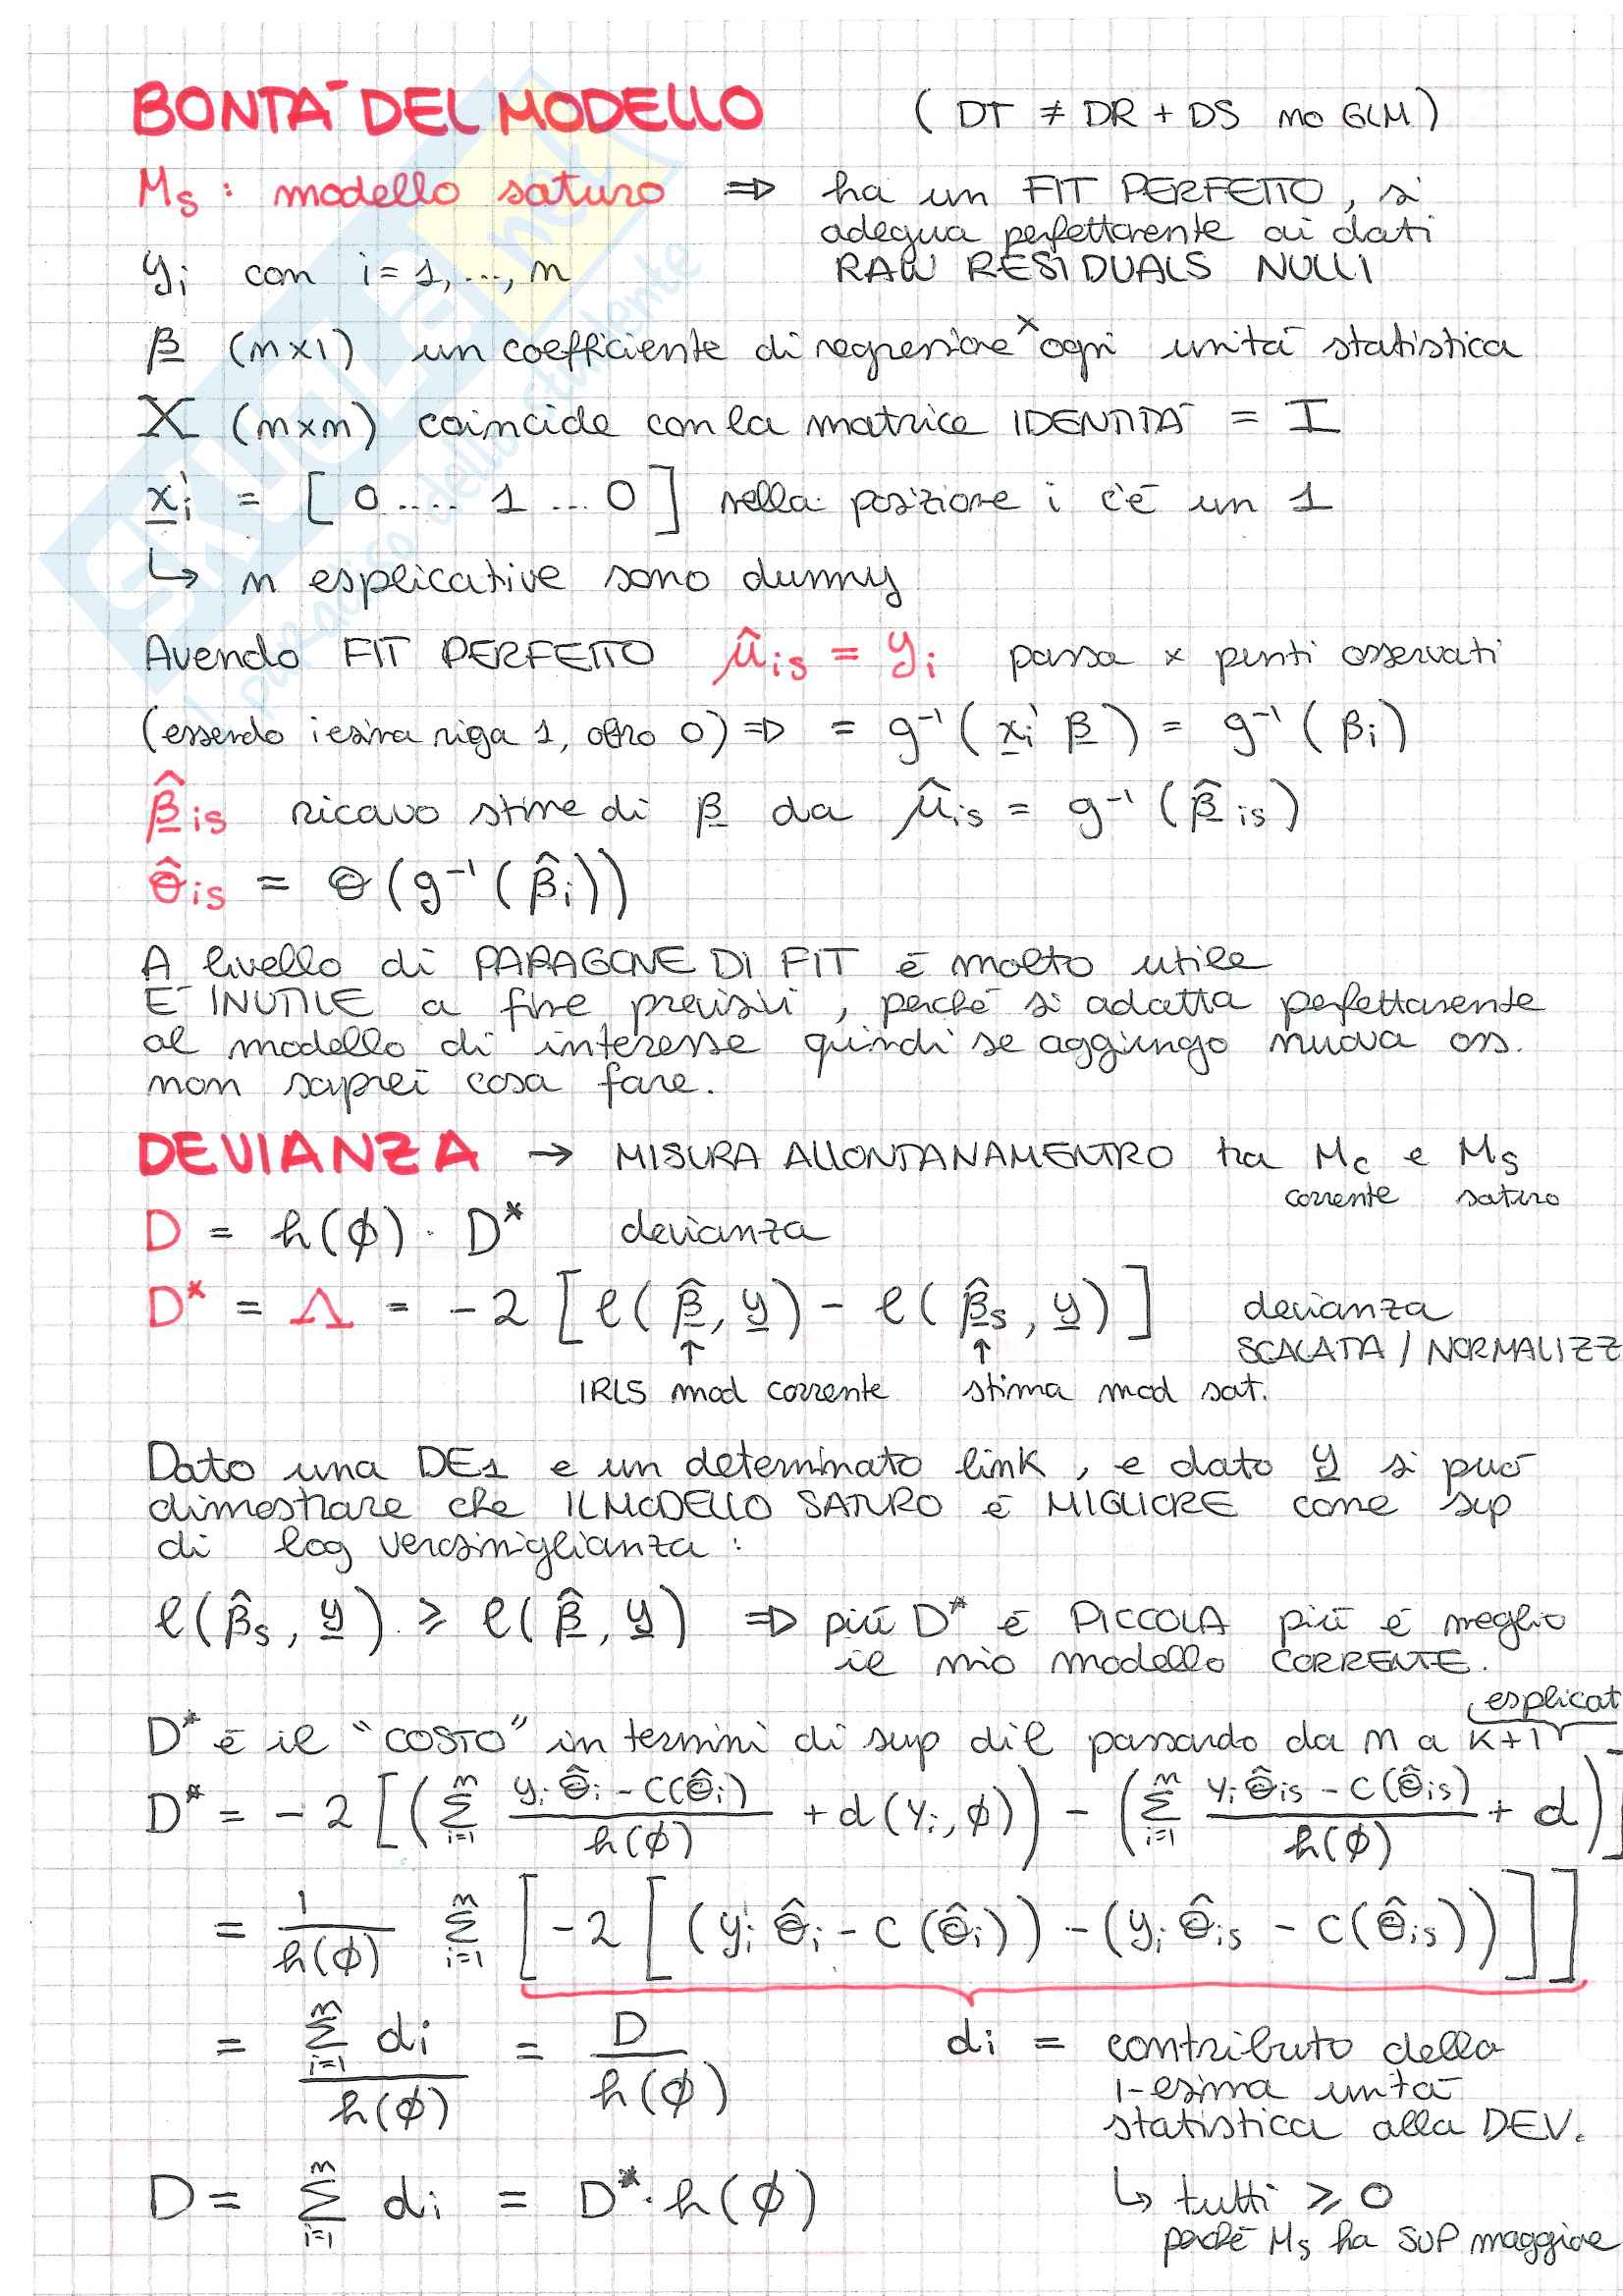 BONTA' DEL MODELLO ( DT ≠ DR + DS no GLM )
Ms : modello saturo ⇒ ha un FIT PERFETTO, si
adegua perfettamente ai dati
yi con i = 1, ..., n RAW RESIDUALS NULLI
β (n×1) un coefficiente di regressione × ogni unità statistica
X (n×n) coincide con la matrice IDENTITA' = I
xi' = [ 0 .... 1 ... 0 ] nella posizione i c'è un 1
↳ n esplicative sono dummy
Avendo FIT PERFETTO μ̂is = yi passa × punti osservati
(essendo iesima riga 1, altro 0) ⇒ = g⁻¹ ( xi' β ) = g⁻¹ ( βi )
β̂is ricavo stime di β da μ̂is = g⁻¹ ( β̂is )
θ̂is = θ ( g⁻¹ ( β̂i ))
A livello di PARAGONE DI FIT è molto utile
E' INUTILE a fine previsivi, perché si adatta perfettamente
al modello di interesse quindi se aggiungo nuova oss.
non saprei cosa fare.
DEVIANZA → MISURA ALLONTANAMENTRO tra Mc e Ms
corrente saturo
D = h(ϕ) · D* devianza
D* = Λ = -2 [ l( β̂, y ) - l( β̂s, y ) ] devianza
SCALATA / NORMALIZZ
↑ ↑
IRLS mod corrente stima mod sat.
Dato una DE1 e un determinato link, e dato y si può
dimostrare che IL MODELLO SATURO è MIGLIORE come sup
di log verosimiglianza :
l( β̂s, y ) ≥ l( β̂, y ) ⇒ più D* è PICCOLA più è meglio
il mio modello CORRENTE.
esplicat
D* è il "COSTO" in termini di sup di l passando da n a k+1
D* = -2 [ ( Σ_{i=1}^{n} (yi θ̂i - c(θ̂i)) / h(ϕ) + d(yi, ϕ) ) - ( Σ_{i=1}^{n} (yi θ̂is - c(θ̂is)) / h(ϕ) + d ) ]
= 1 / h(ϕ) Σ_{i=1}^{n} [ -2 [ (yi θ̂i - c(θ̂i)) - (yi θ̂is - c(θ̂is)) ] ]
= Σ_{i=1}^{n} di / h(ϕ) = D / h(ϕ) di = contributo della
i-esima unità
statistica alla DEV.
D = Σ_{i=1}^{n} di = D* · h(ϕ) ↳ tutti ≥ 0
perché Ms ha SUP maggiore